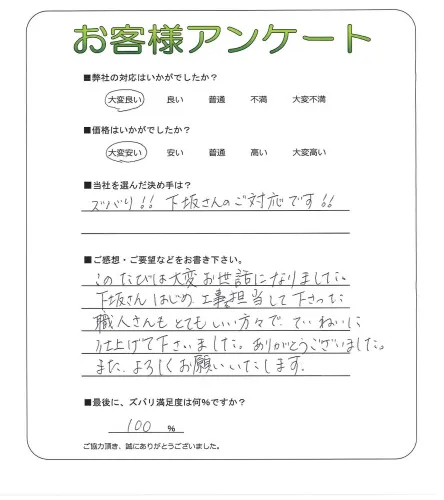 お客様アンケート
■弊社の対応はいかがでしたか?
大変良い 良い 普通 不満 大変不満
■価格はいかがでしたか?
大変安い 安い 普通 高い 大変高い
■当社を選んだ決め手は?
ズバリ!! 下坂さんのご対応です!!
■ご感想・ご要望などをお書き下さい。
このたびは大変お世話になりました。
下坂さんはじめ、工事担当して下さった
職人さんもとてもいい方々で、ていねいに
仕上げて下さいました。ありがとうございました。
また、よろしくお願いいたします。
■最後に、ズバリ満足度は何%ですか?
100 %
ご協力頂き、誠にありがとうございました。